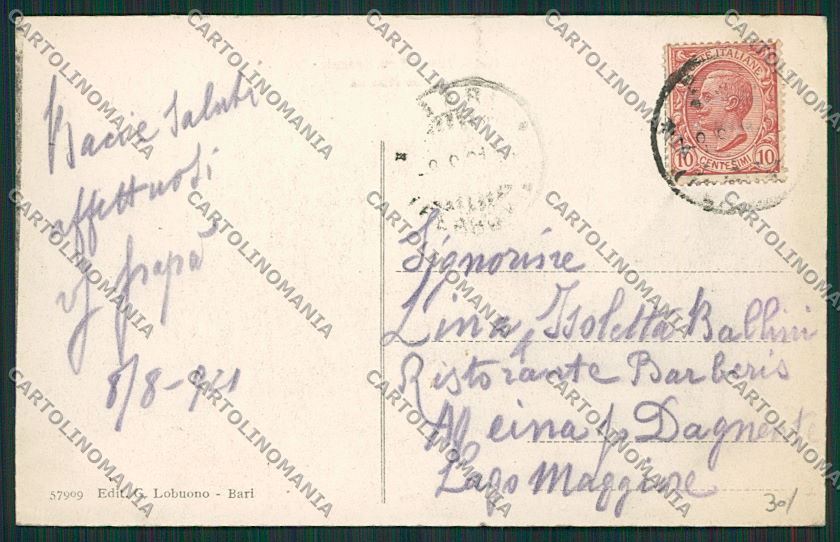 Bacci e Saluti
affettuosi
Papà
8/8-921
POSTE ITALIANE
10 CENTESIMI 10
Signorine
Lina, Isoletta Ballini
Ristorante Barberis
Meina p Dagnente
Lago Maggiore
57909 Edit. G. Lobuono - Bari
30/
CARTOLINOMANIA